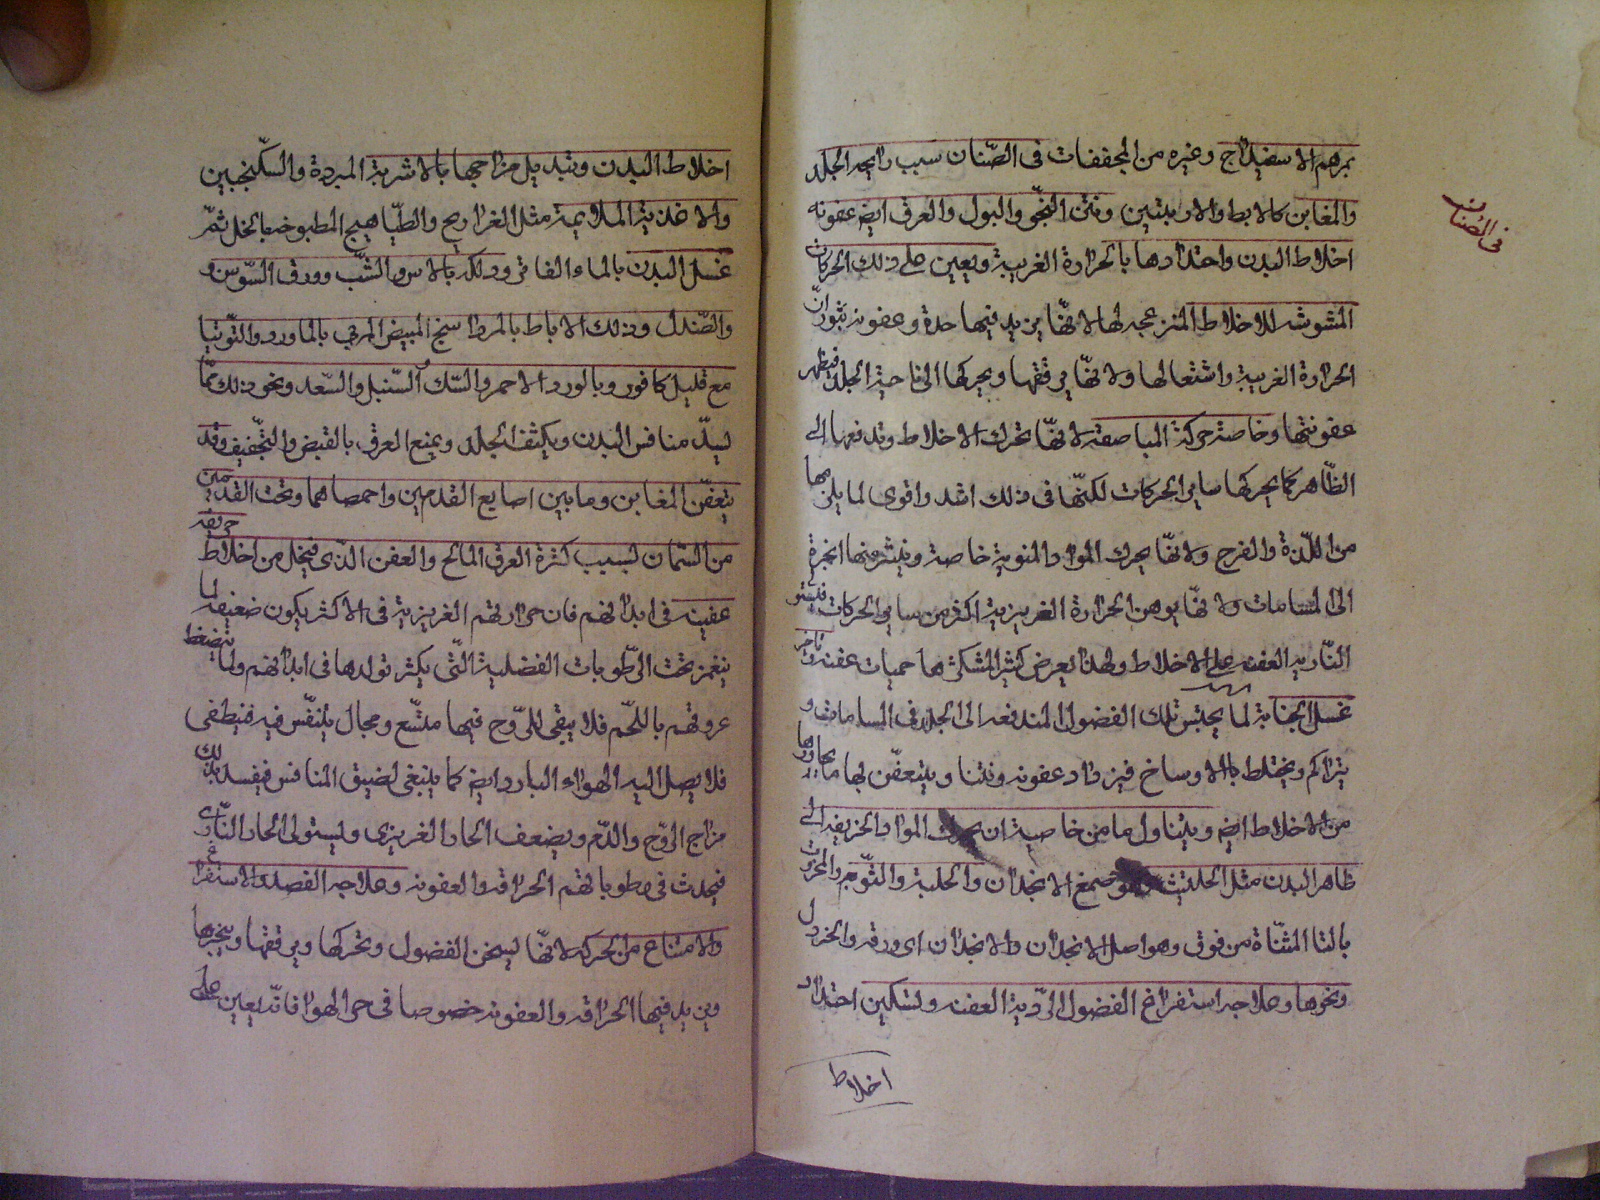 بمرهم الاسفيداج وغيره من المجففات فى الصّنان سبب رائحة الجلد
فى الصّنان
والمغابن كالابط والاربيتين ونتن النجو والبول والعرق ايضا عفونة
اخلاط البدن واحتدادها بالحرارة الغريبة ويعين على ذلك الحركات
المشوشه للاخلاط المنزعجه لها لانّها يزيد فيها حدة وعفونة بثوران
الحرارة الغريبة واشتعالها ولانّها يرققها ويحركها الى ناحية الجلد فيظهر
عفونتها وخاصة حركة المباضعة لانّها تحرك الاخلاط وتدفعها الى
الظّاهر كما يحركها ساير الحركات لكنّها فى ذلك اشد واقوى لما يلزمها
من اللّذة والفرح ولانّها يحرك المواد المنوية خاصة وينثر منها ابخرة
الى المسامات ولانّها يوهن الحرارة الغريزية اكثر من ساير الحركات فيستولى
النّارية العفنة على الاخلاط ولهذا يعرض كثيرا لمستكثريها حميات عفنة وتاخر
غسل الجنابة لما يحتبس تلك الفضول المندفعه الى الجلد فى المسامات و
يتراكم ويختلط بالاوساخ فيزداد عفونة ونتنا ويتعفّن بها ما يجاورها
من الاخلاط ايضا ويتناول ما من خاصية ان يحرك المواد الحريفه الى
ظاهر البدن مثل الحلتيت وهو صمغ الانجدان والحلبة والثّوم والمحروث
بالتا المثنّاة من فوق وهو اصل الانجدان والانجدان اى ورقه والخردل
ونحوها وعلاجه استفراغ الفضول الرّدية العفنه وتسكين احتداد
اخلاط
اخلاط البدن وتبديل مزاجها بالاشربة المبردة والسّكنجبين
والاغذية الملايمة مثل الفراريج والطّياهيج المطبوخه بالخل ثمّ
غسل البدن بالماء الفاتر ودلكه بالاس والشّب وورق السّوسن و
والصّندل ودلك الاباط بالمرداسنج المبيض المربي بالماورد والتّوتيا
مع قليل كافور وبالورد الاحمر والسّك والسّنبل والسّعد ونحو ذلك ممّا
يسدّ منافس البدن ويكثف الجلد ويمنع العرق بالقبض والتجّفيف وقد
يتعفّن المغابن وما بين اصابع القدمين واخمصاهما وتحت القدمين
من السّمان لسبب كثرة العرق المالح والعفن الذّى يتحلل من اخلاط حريفه
عفينة فى ابدانهم فان حرارتهم الغريزية فى الاكثر يكون ضعيفة لما
ينغمر تحت الرّطوبات الفضلية التّى يكثر تولدها فى ابدانهم ولما ينضغط
عروقهم باللّحم فلا يبقى للرّوح فيها متّسع ومجال يتنفّس فيه فينطفى
فلا يصل اليه الهواء البارد ايضا كما ينبغى لضيق المنافس فيفسد بذلك
مزاج الرّوح والدّم ويضعف الحار الغريزى ويستولى الحار النّارى
فيحدث فى رطوباتهم الحراقة والعفونه وعلاجه الفصد والاستفراغ
والامتناع من الحركه لانّها يسخن الفضول وتحركها ويرققها ويبخرها
ويزيد فيها الحراقه والعفونة خصوصا فى حر الهوا فانّه يعين على